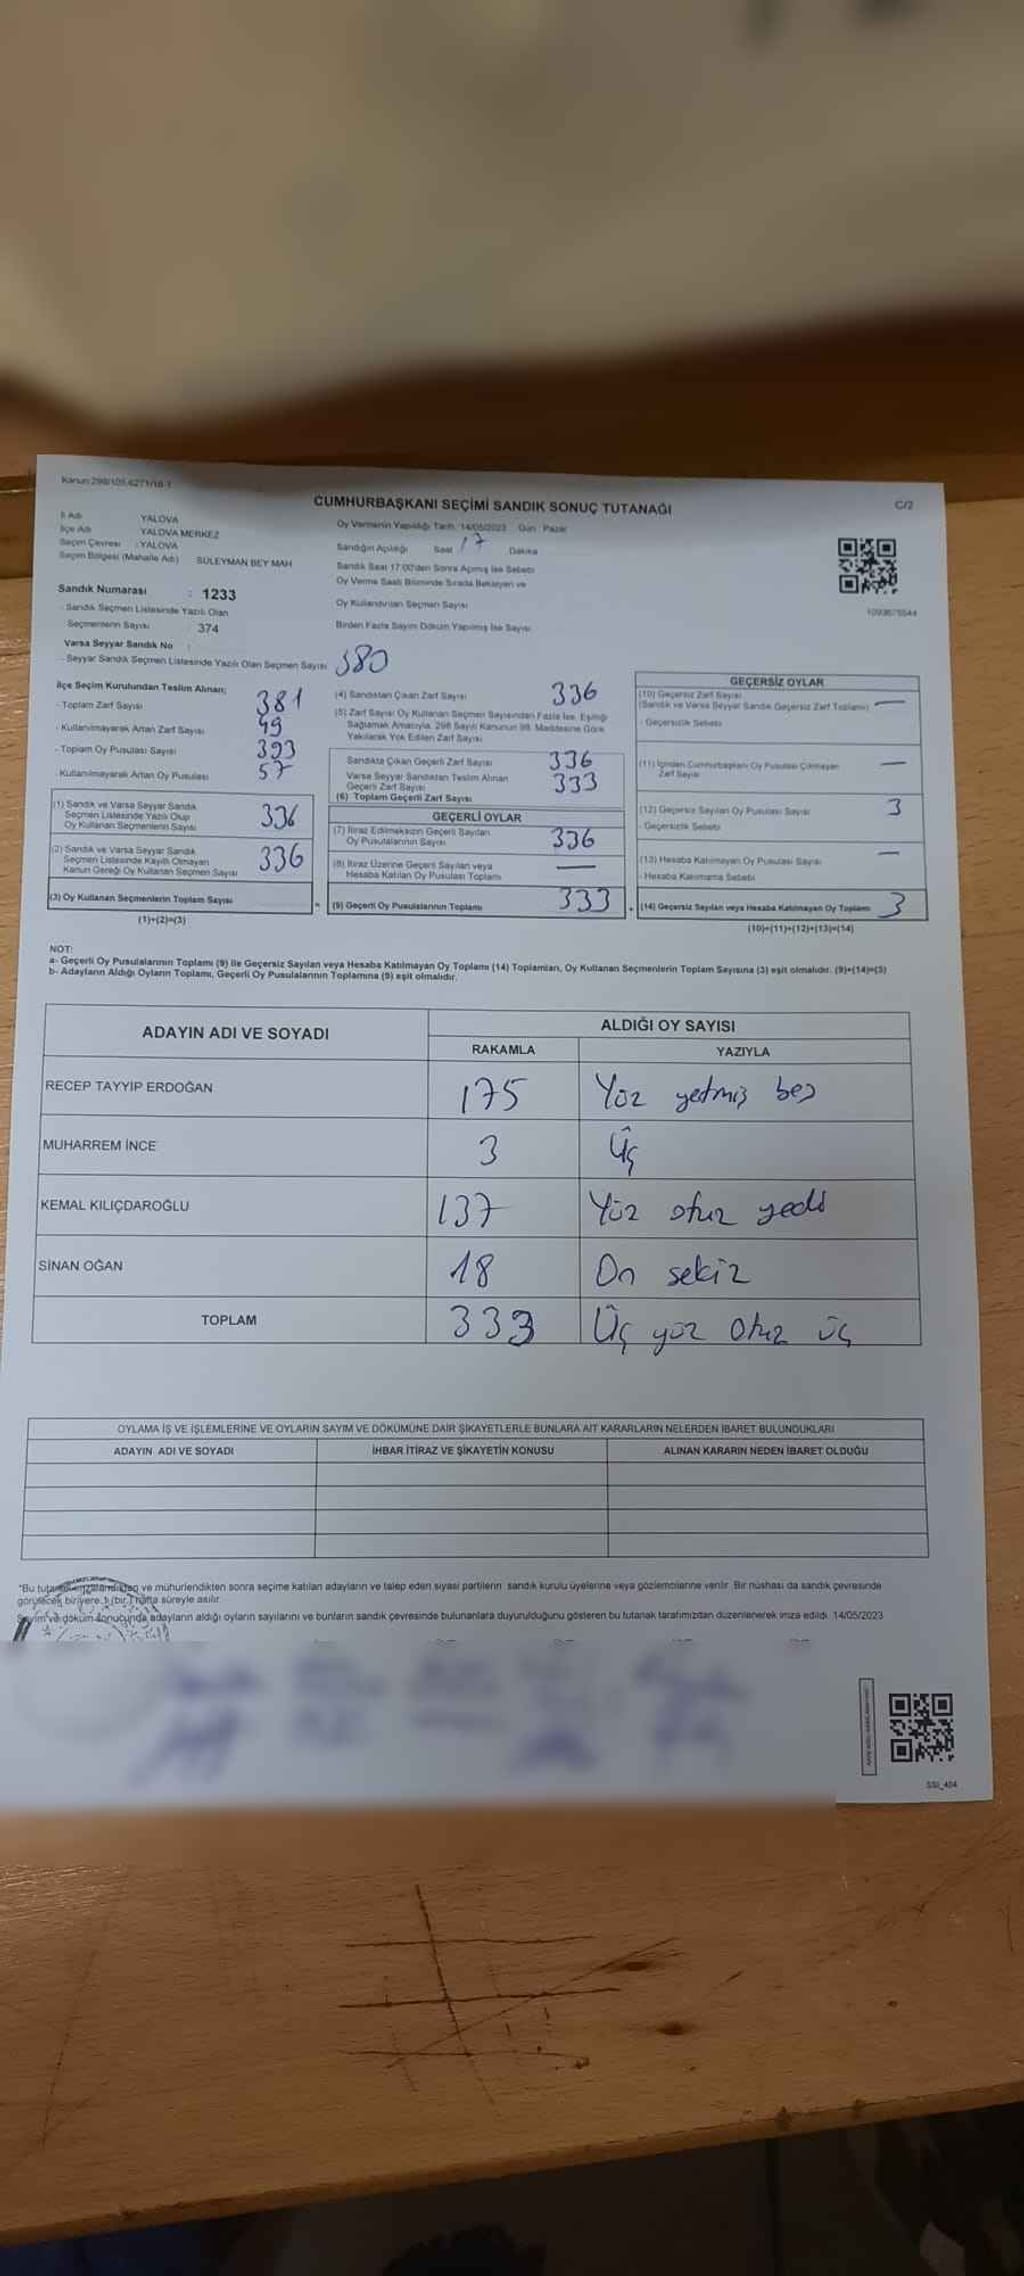 Kanun:298/105,6271/18-1
CUMHURBAŞKANI SEÇİMİ SANDIK SONUÇ TUTANAĞI
C/2
İl Adı YALOVA
İlçe Adı YALOVA MERKEZ
Seçim Çevresi : YALOVA
Seçim Bölgesi (Mahalle Adı) SÜLEYMAN BEY MAH
Sandık Numarası : 1233
- Sandık Seçmen Listesinde Yazılı Olan
Seçmenlerin Sayısı 374
Varsa Seyyar Sandık No :
- Seyyar Sandık Seçmen Listesinde Yazılı Olan Seçmen Sayısı 380
Oy Vermenin Yapıldığı Tarih: 14/05/2023 Gün : Pazar
Sandığın Açıldığı Saat 17 Dakika
Sandık Saat 17:00'den Sonra Açmış İse Sebebi
Oy Verme Saati Bitiminde Sırada Bekleyen ve
Oy Kullandırılan Seçmen Sayısı
Birden Fazla Sayım Döküm Yapılmış İse Sayısı
1093675544
İlçe Seçim Kurulundan Teslim Alınan;
- Toplam Zarf Sayısı 381
- Kullanılmayarak Artan Zarf Sayısı 49
- Toplam Oy Pusulası Sayısı 393
- Kullanılmayarak Artan Oy Pusulası 57
(1) Sandık ve Varsa Seyyar Sandık
Seçmen Listesinde Yazılı Olup
Oy Kullanan Seçmenlerin Sayısı 336
(2) Sandık ve Varsa Seyyar Sandık
Seçmen Listesinde Kayıtlı Olmayan
Kanun Gereği Oy Kullanan Seçmen Sayısı 336
(3) Oy Kullanan Seçmenlerin Toplam Sayısı
(1)+(2)=(3)
(4) Sandıktan Çıkan Zarf Sayısı 336
(5) Zarf Sayısı Oy Kullanan Seçmen Sayısından Fazla İse, Eşitliği
Sağlamak Amacıyla, 298 Sayılı Kanunun 98. Maddesine Göre
Yakılarak Yok Edilen Zarf Sayısı
Sandıkta Çıkan Geçerli Zarf Sayısı 336
Varsa Seyyar Sandıktan Teslim Alınan
Geçerli Zarf Sayısı 333
(6) Toplam Geçerli Zarf Sayısı
GEÇERLİ OYLAR
(7) İtiraz Edilmeksizin Geçerli Sayılan
Oy Pusulalarının Sayısı 336
(8) İtiraz Üzerine Geçerli Sayılan veya
Hesaba Katılan Oy Pusulası Toplamı —
(9) Geçerli Oy Pusulalarının Toplamı 333
GEÇERSİZ OYLAR
(10) Geçersiz Zarf Sayısı
(Sandık ve Varsa Seyyar Sandık Geçersiz Zarf Toplamı) —
- Geçersizlik Sebebi
(11) İçinden Cumhurbaşkanı Oy Pusulası Çıkmayan
Zarf Sayısı —
(12) Geçersiz Sayılan Oy Pusulası Sayısı 3
- Geçersizlik Sebebi
(13) Hesaba Katılmayan Oy Pusulası Sayısı —
- Hesaba Katılmama Sebebi
(14) Geçersiz Sayılan veya Hesaba Katılmayan Oy Toplamı 3
(10)+(11)+(12)+(13)=(14)
NOT:
a- Geçerli Oy Pusulalarının Toplamı (9) ile Geçersiz Sayılan veya Hesaba Katılmayan Oy Toplamı (14) Toplamları, Oy Kullanan Seçmenlerin Toplam Sayısına (3) eşit olmalıdır. (9)+(14)=(3)
b- Adayların Aldığı Oyların Toplamı, Geçerli Oy Pusulalarının Toplamına (9) eşit olmalıdır.
ADAYIN ADI VE SOYADI
ALDIĞI OY SAYISI
RAKAMLA YAZIYLA
RECEP TAYYİP ERDOĞAN 175 Yüz yetmiş beş
MUHARREM İNCE 3 Üç
KEMAL KILIÇDAROĞLU 137 Yüz otuz yedi
SİNAN OĞAN 18 On sekiz
TOPLAM 333 Üç yüz Otuz üç
OYLAMA İŞ VE İŞLEMLERİNE VE OYLARIN SAYIM VE DÖKÜMÜNE DAİR ŞİKAYETLERLE BUNLARA AİT KARARLARIN NELERDEN İBARET BULUNDUKLARI
ADAYIN ADI VE SOYADI İHBAR İTİRAZ VE ŞİKAYETİN KONUSU ALINAN KARARIN NEDEN İBARET OLDUĞU
ve mühürlendikten sonra seçime katılan adayların ve talep eden siyasi partilerin sandık kurulu üyelerine veya gözlemcilerine verilir. Bir nüshası da sandık çevresinde
görülecek bir yere 1 (bir) hafta süreyle asılır.
Sayım ve döküm sonucunda adayların aldığı oyların sayılarını ve bunların sandık çevresinde bulunanlara duyurulduğunu gösteren bu tutanak tarafımızdan düzenlenerek imza edildi. 14/05/2023
SSI_404